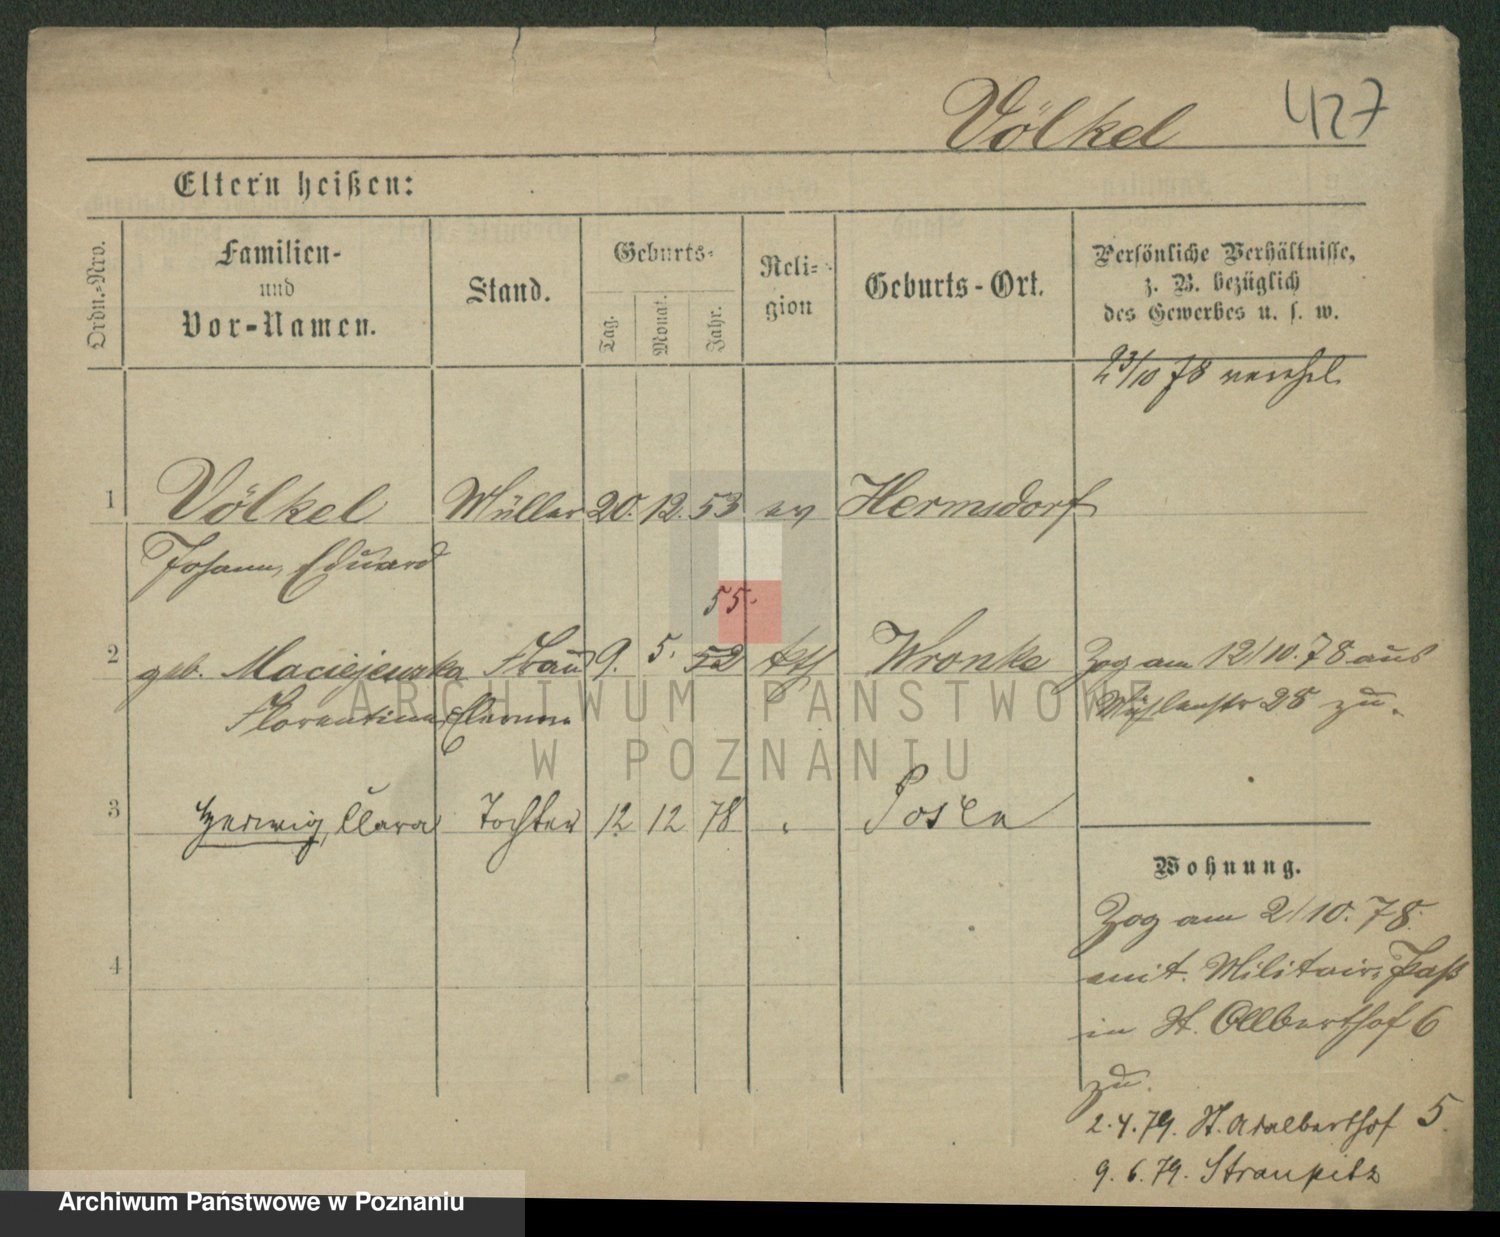 Völkel 427
Eltern heißen:
Ordn.-Nro.
Familien-
und
Vor-Namen.
Stand.
Geburts-
Tag.
Monat.
Jahr.
Reli-
gion
Geburts-Ort.
Persönliche Verhältnisse,
z. B. bezüglich
des Gewerbes u. s. w.
23/10 78 verehel.
1 Völkel Müller 20. 12. 53 ev Hermsdorf
Johann, Eduard
55.
2 geb. Maciejewska Frau 9. 5. 52 kth Wronke Zog am 12/10. 78 aus
Florentine Mühlenstr 28 zu.
3 Hedwig, Clara Tochter 12 12 78 " Posen
Wohnung.
Zog am 2/10. 78.
mit. Militair Paß
in St. Adlberthof 6
zu.
4
2.4.79. St. Adalberthof 5.
9.6.79. Straupitz
ARCHIWUM PAŃSTWOWE
W POZNANIU
Archiwum Państwowe w Poznaniu